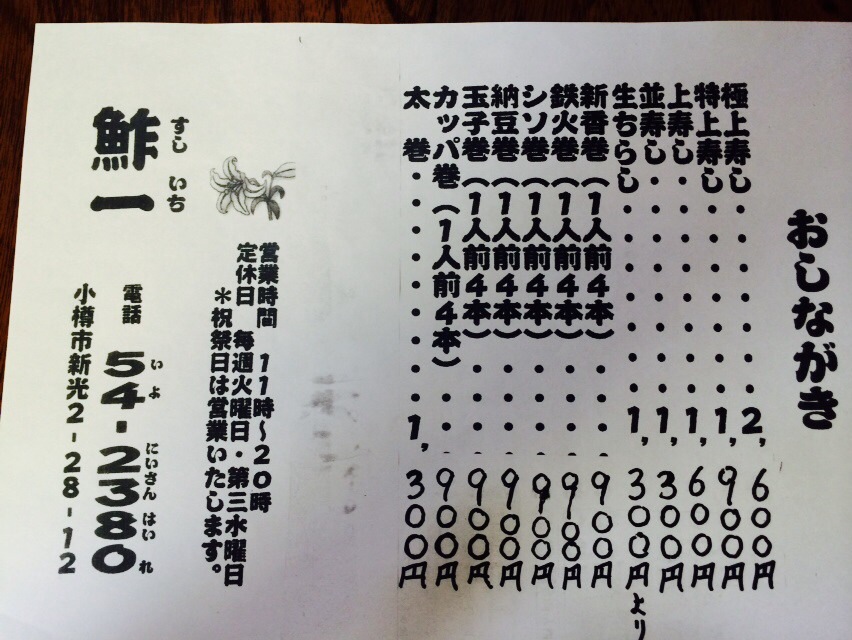 おしながき
極上寿し・・・・・・・2,600円
特上寿し・・・・・・・1,900円
上寿し・・・・・・・・1,600円
並寿し・・・・・・・・1,300円
生ちらし・・・・・・・1,300円より
新香巻(1人前4本)・・・・900円
鉄火巻(1人前4本)・・・・900円
シソ巻(1人前4本)・・・・900円
納豆巻(1人前4本)・・・・900円
玉子巻(1人前4本)・・・・900円
カッパ巻(1人前4本)・・・900円
太 巻・・・・・・・・1,300円
営業時間 11時～20時
定休日 毎週火曜日・第三水曜日
＊祝祭日は営業いたします。
すし いち
鮓一
いよ にいさん はいれ
電話 54-2380
小樽市新光2-28-12